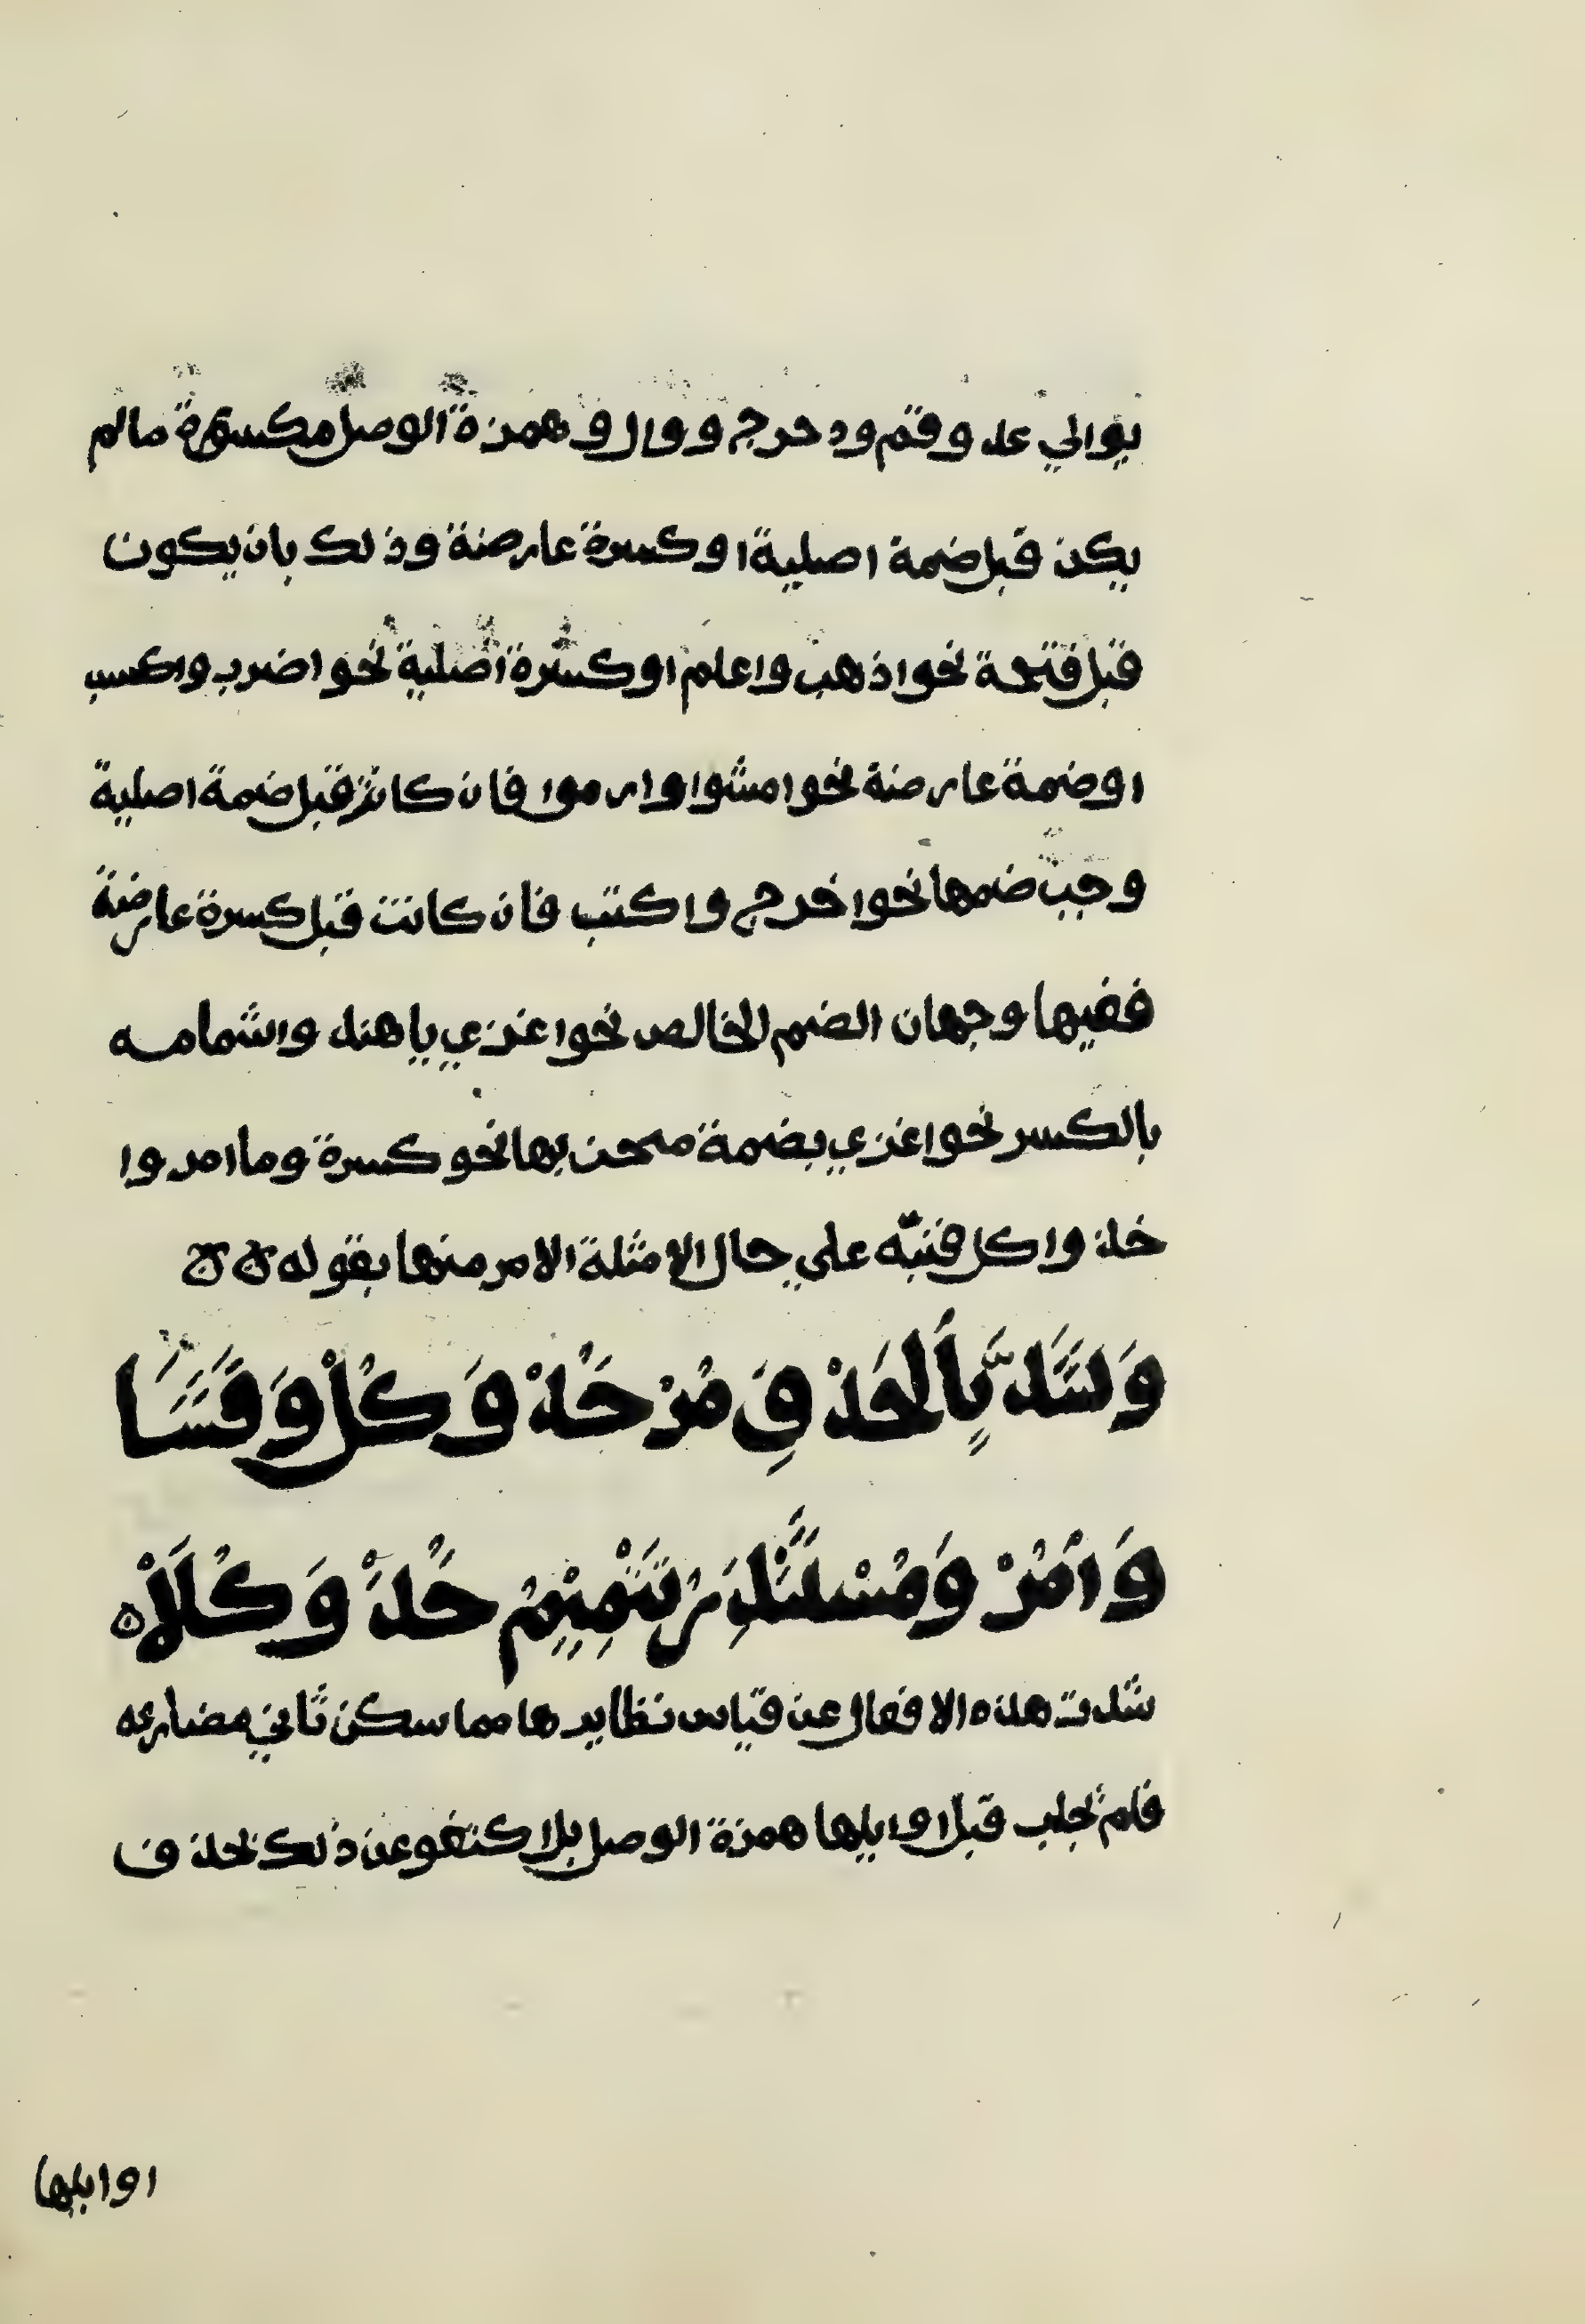 يوالي عد وقم ودحرج ووال وهمزة الوصل مكسورة مالم
يكن قبل ضمة اصلية اوكسرة عارضة وذلك بان يكون
قبل فتحة نحو اذهب واعلم اوكسرة اصلية نحو اضرب واكسب
اوضمة عارضة نحو امشوا وارموا فان كان قبل ضمة اصلية
وجب ضمها نحو اخرج واكتب فان كانت قبل كسرة عارضة
ففيها وجهان الضم الخالص نحو اغزي ياهند واشمامه
بالكسر نحو اغزي بضمة منحن بها نحو كسرة وما امروا
خذ واكل فنبّه علي حال الامثلة الامر منها بقوله
وَشَذَّ بِالحَذْفِ مُرْ خُذْ وَكُلْ وَفَشَا
وَاْمُرْ وَمُسْتَنْدِرٌ تَتْمِيْمُ خُذْ وَكُلَاْ ه
شذت هذه الافعال عن قياس نظايرها مما سكن ثاني مضارعه
فلم تجلب قبل اوايلها همزة الوصل بلا كتفو عن ذلك بحذف
اوايلها